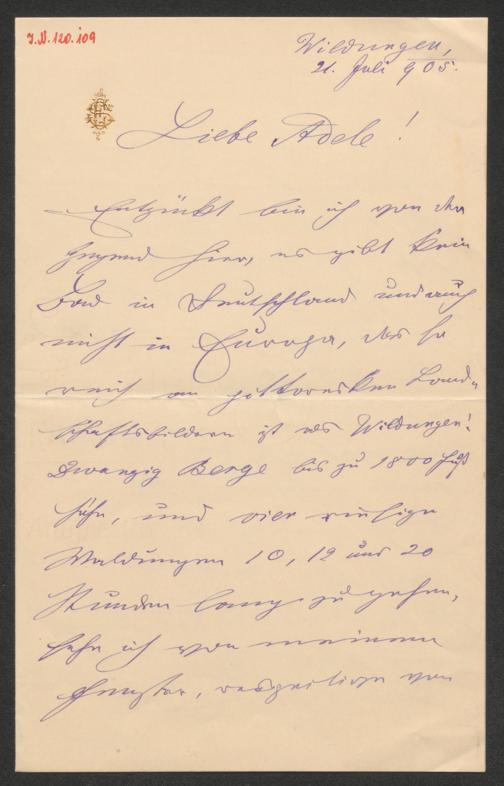 J.N. 120.109
Wildungen,
21. Juli 905.
Liebe Adele!
Entzückt bin ich von der
Gegend hier, es gibt kein
Bad in Deutschland und auch
nicht in Europa, das so
reich an pittoresken Land-
schaftsbildern ist als Wildungen!
Zwanzig Berge bis zu 1800 Fuß
Höhe, und vier riesige
Waldungen 10, 12 und 20
Stunden lang zu gehen,
sehe ich von meinem
Fenster, respective von